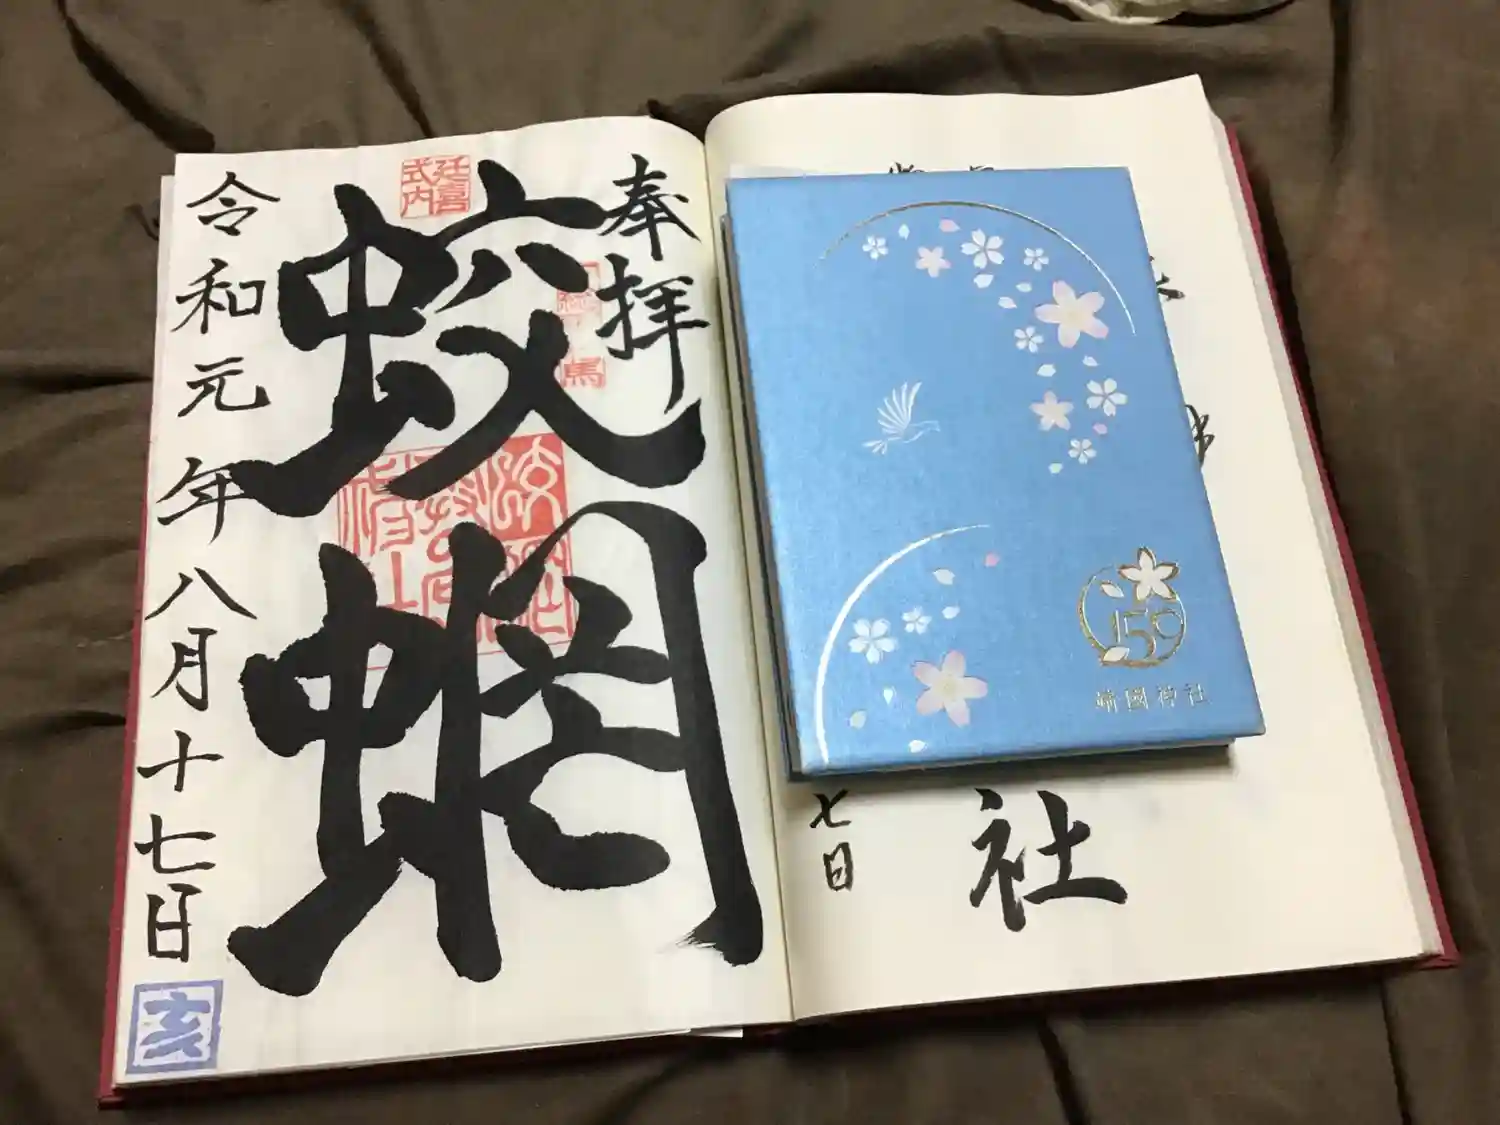 奉拝
延喜
式内
蛟蝄
令和元年八月十七日
亥
150
靖國神社
社
七日